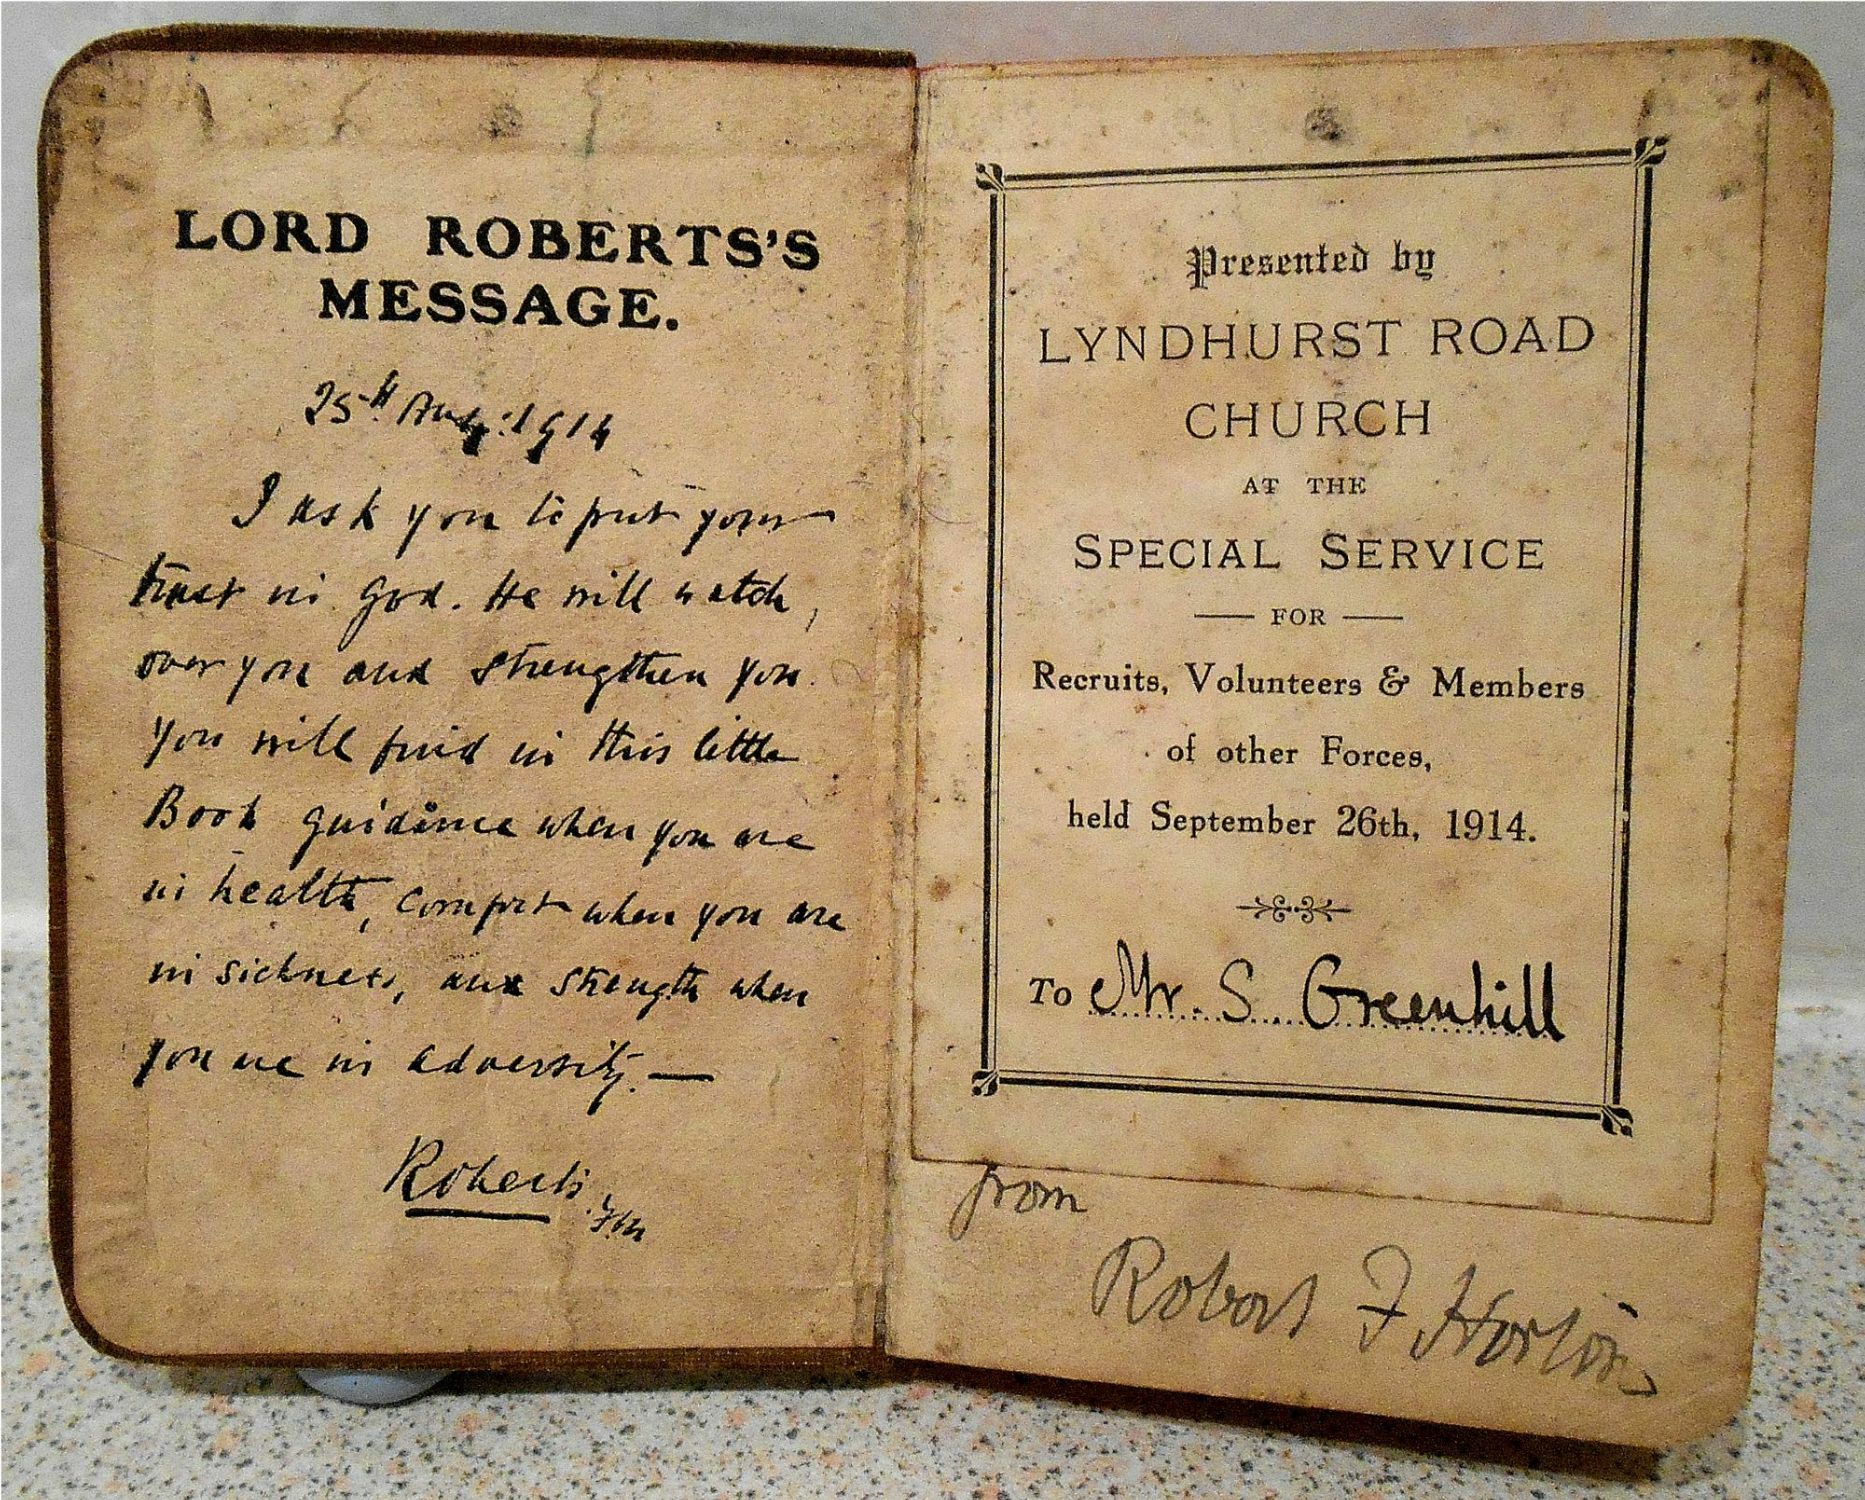 LORD ROBERTS'S
MESSAGE.
25th Aug. 1914
I ask you to put your
trust in God. He will watch
over you and strengthen you.
You will find in this little
Book guidance when you are
in health, comfort when you are
in sickness, and strength when
you are in adversity.—
Roberts, FM
Presented by
LYNDHURST ROAD
CHURCH
AT THE
SPECIAL SERVICE
— FOR —
Recruits, Volunteers & Members
of other Forces,
held September 26th, 1914.
To Mr. S. Greenhill
from
Robert F Horton